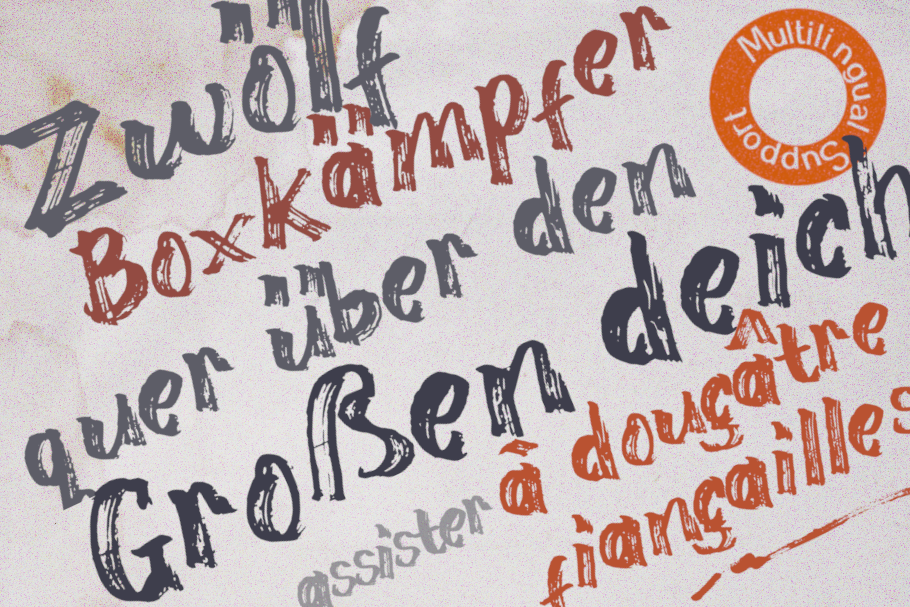 Zwölf
Boxkämpfer
quer über den
Großen deich
assister
â douçâtre
fiançailles
Multilingual Support